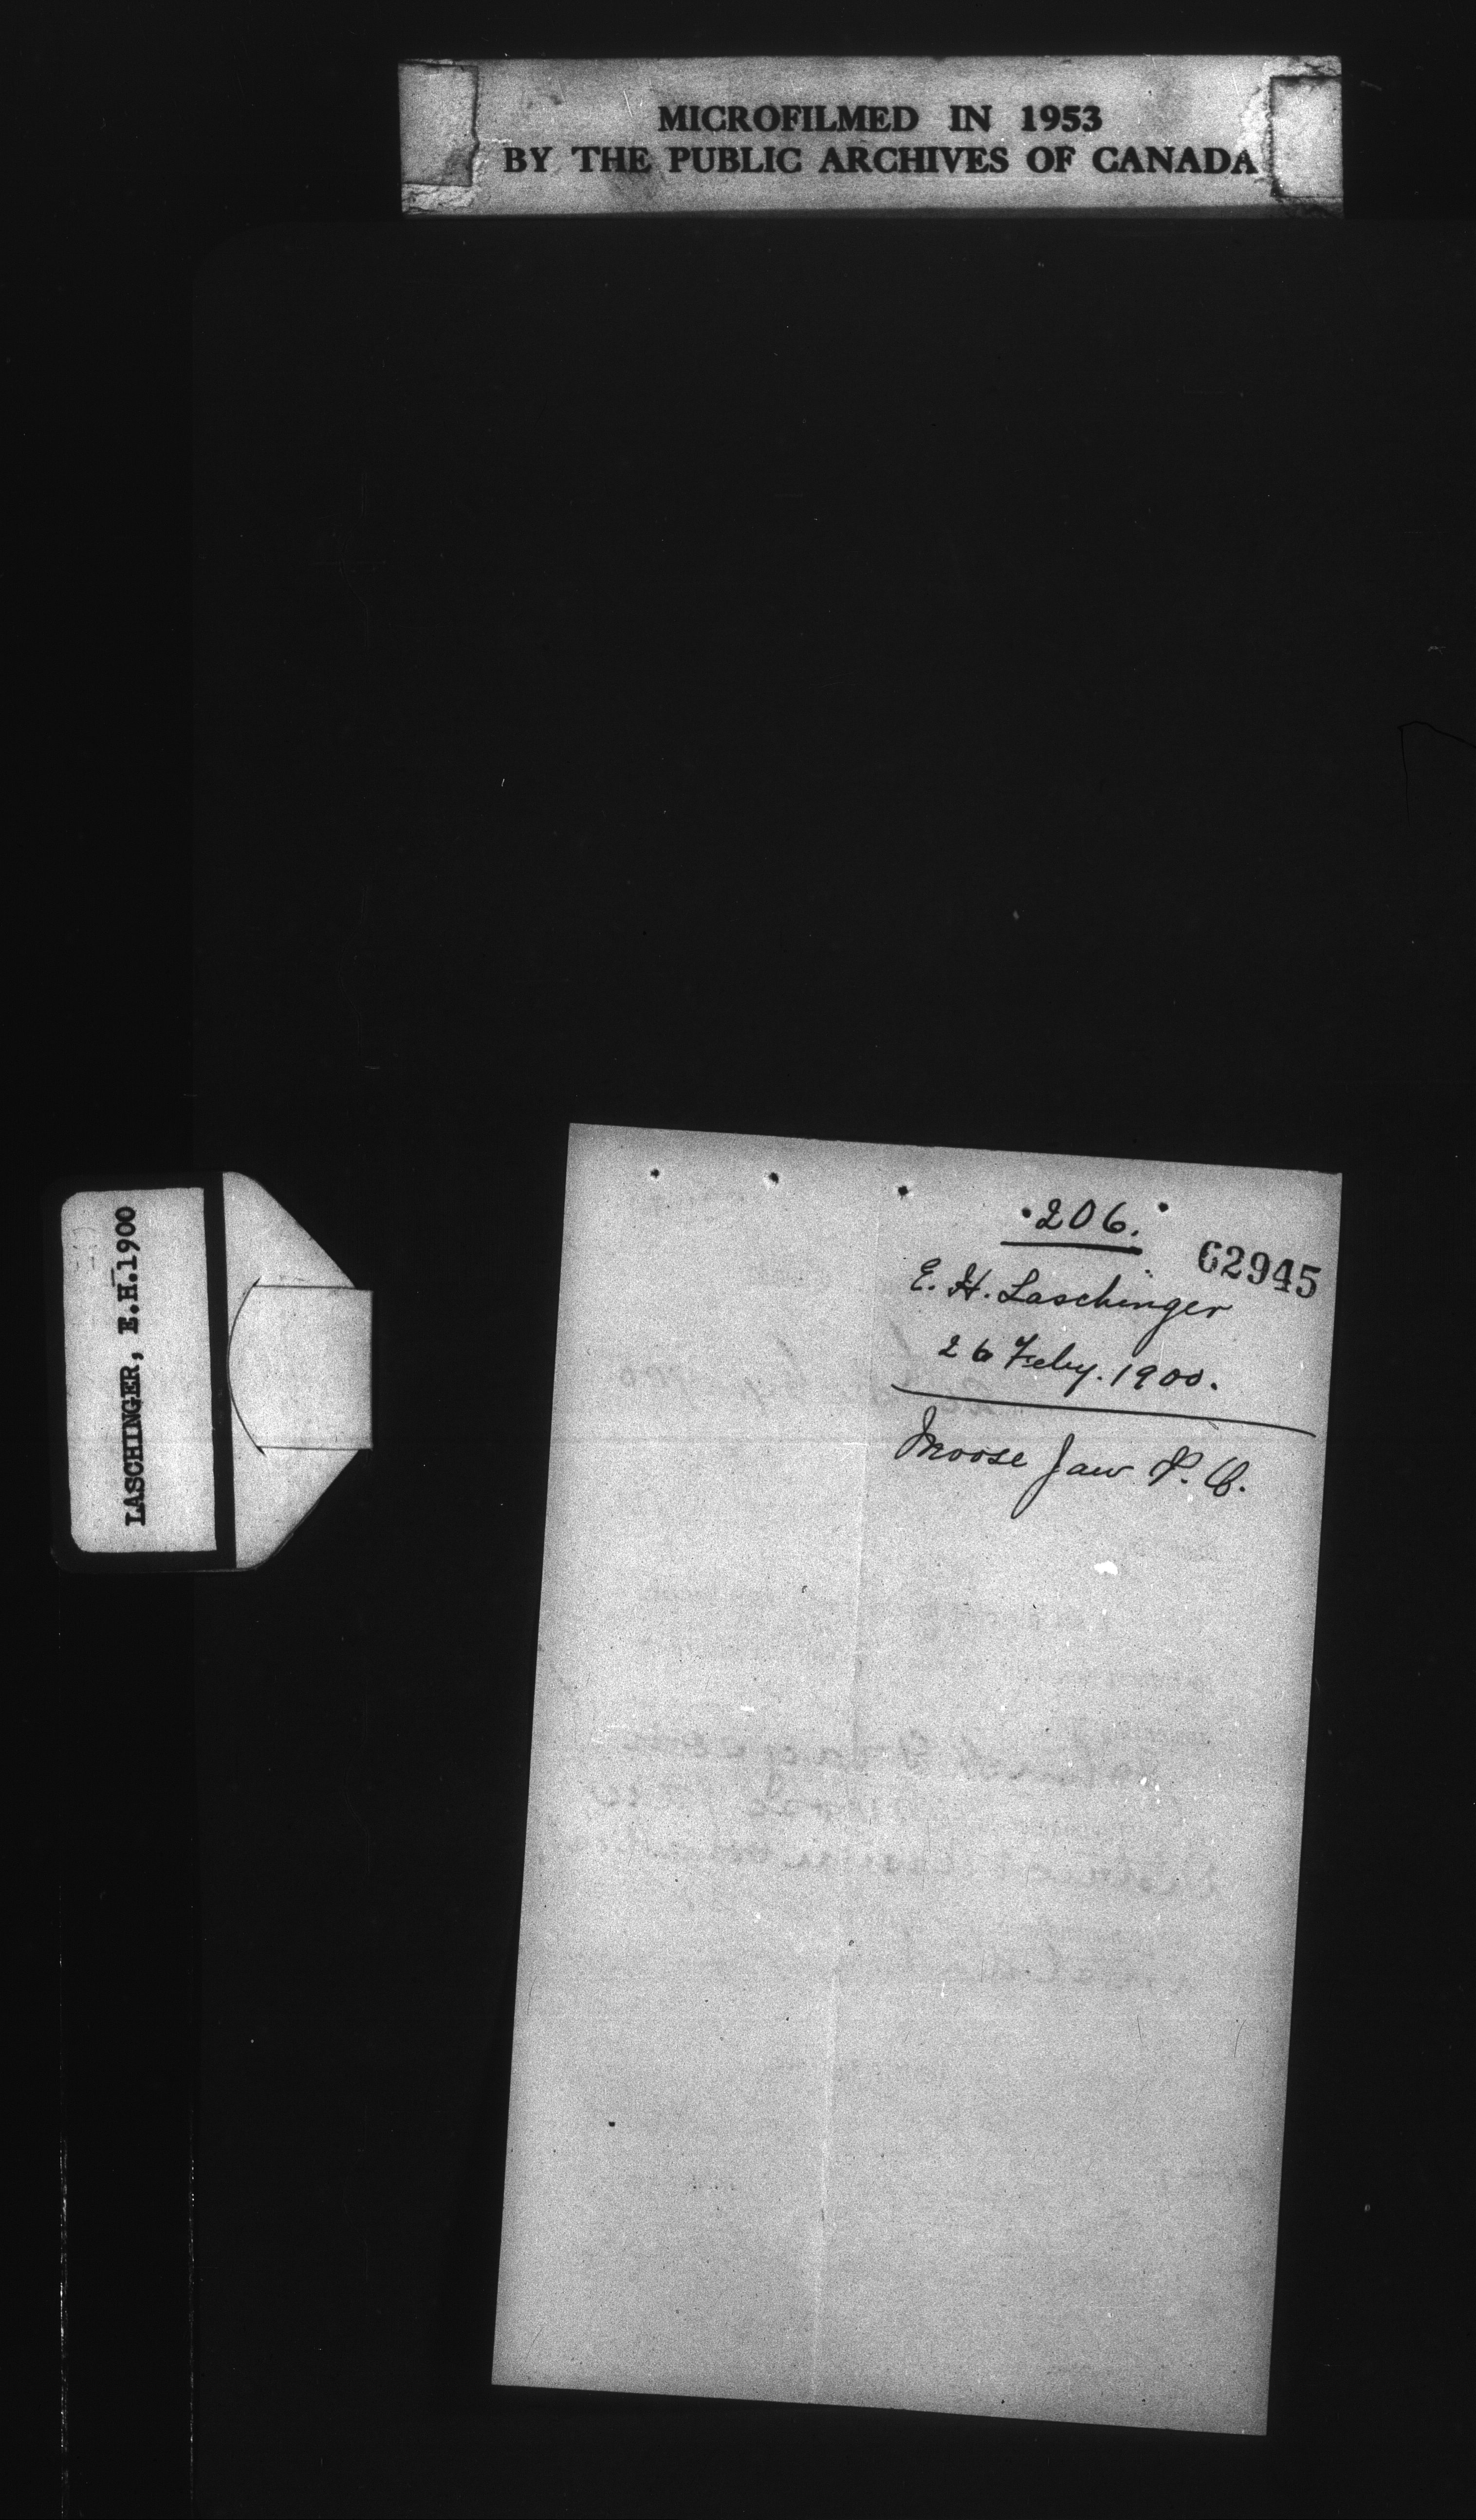 MICROFILMED IN 1953
BY THE PUBLIC ARCHIVES OF CANADA
LASCHINGER, E.H.1900
206.
62945
E. H. Laschinger
26 Feby. 1900.
Moose Jaw P. O.